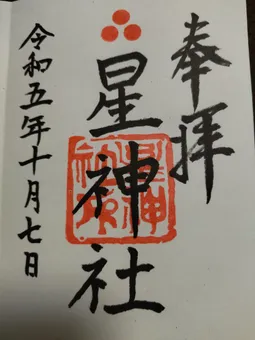 奉拝
星神社
令和五年十月七日